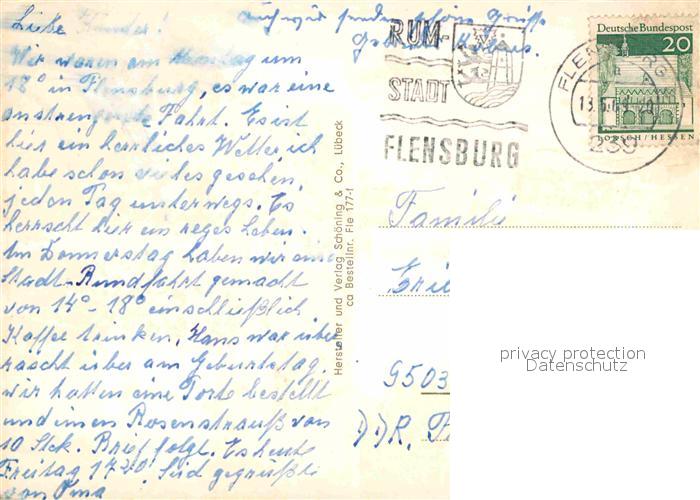 Liebe Kinder!
Wir waren am Montag um
18° in Flensburg, es war eine
anstrengende Fahrt. Es ist
hier ein herrliches Wetter ich
habe schon vieles gesehen,
jeden Tag unterwegs. Es
herrscht hier ein reges Leben.
Im Donnerstag haben wir eine
Stadt-Rundfahrt gemacht
von 14°-18° einschließlich
Kaffee trinken. Hans war über
rascht über am Geburtstag.
wir hatten eine Torte bestellt
und einen Rosenstrauß von
10 Stck. Brief folgt. Es heute
Freitag 17²⁰. Seid gegrüßt
von Oma
Auch wir senden schöne Grüße
Hersteller und Verlag Schöning & Co., Lübeck
ca Bestellnr. Fle 177-1
RUM-
STADT
FLENSBURG
FLENSBURG
239
Deutsche Bundespost
20
LORSCH/HESSEN
Familie
9503
DDR.
privacy protection
Datenschutz